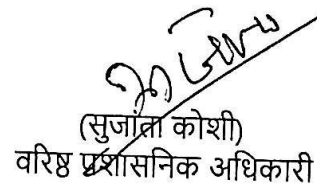 (सुजाता कोशी)
वरिष्ठ प्रशासनिक अधिकारी